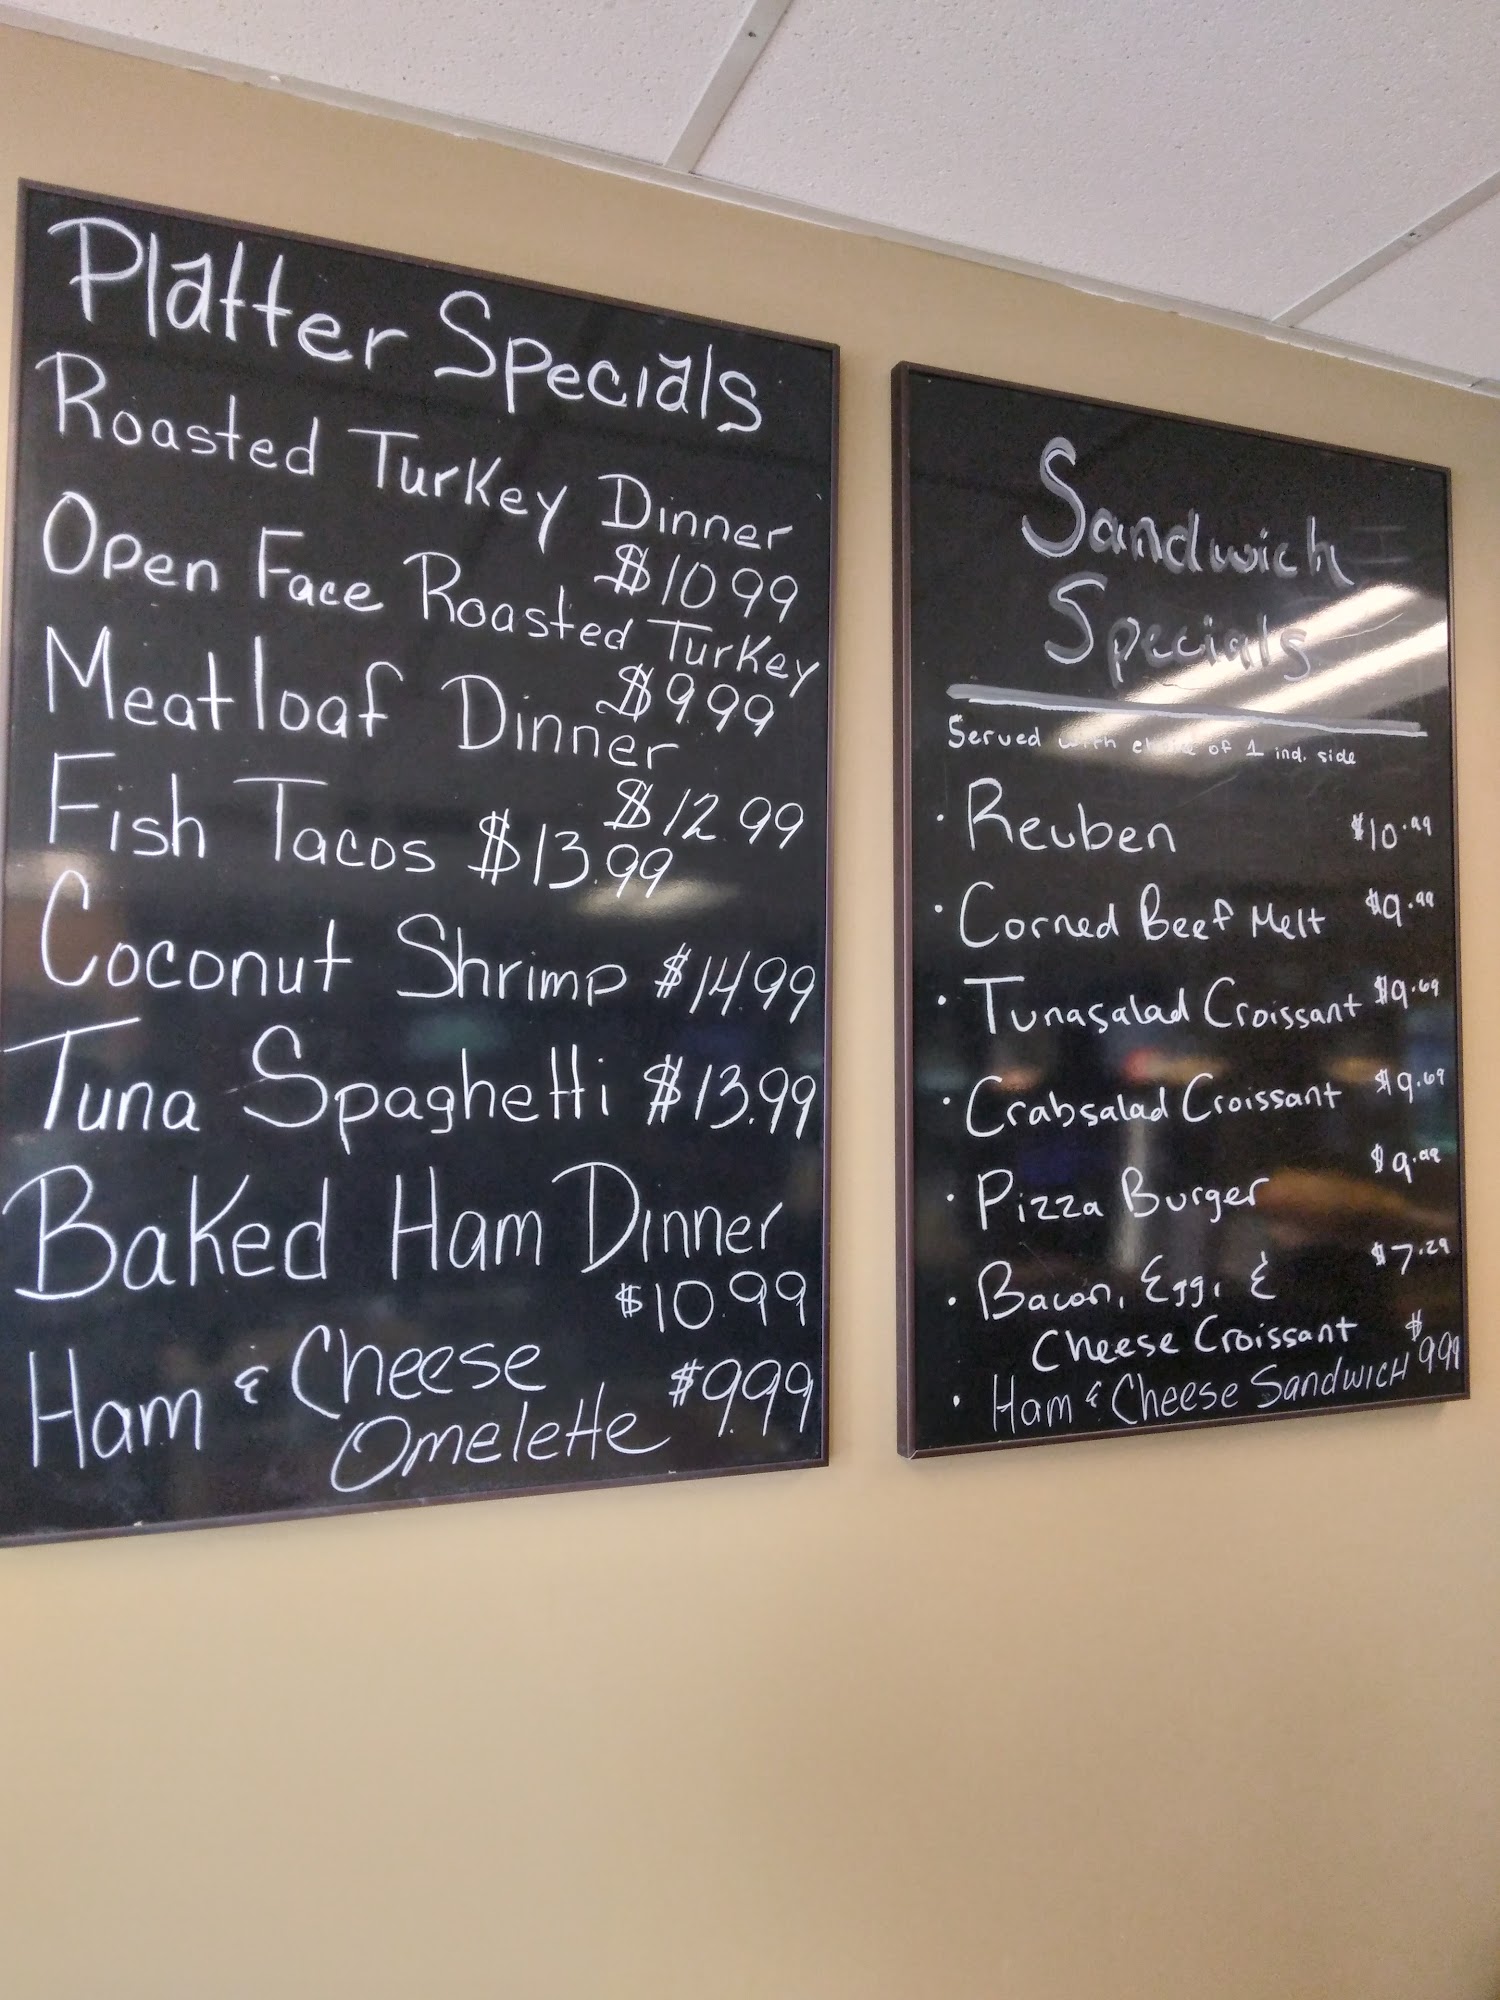 Platter Specials
Roasted Turkey Dinner
$10.99
Open Face Roasted Turkey
$9.99
Meatloaf Dinner
$12.99
Fish Tacos $13.99
Coconut Shrimp $14.99
Tuna Spaghetti $13.99
Baked Ham Dinner
$10.99
Ham & Cheese
Omelette $9.99
Sandwich
Specials
Served with choice of 1 ind. side
• Reuben $10.99
• Corned Beef Melt $9.99
• Tunasalad Croissant $9.69
• Crabsalad Croissant $9.69
• Pizza Burger $9.99
• Bacon, Egg, & $7.29
Cheese Croissant
• Ham & Cheese Sandwich $9.99